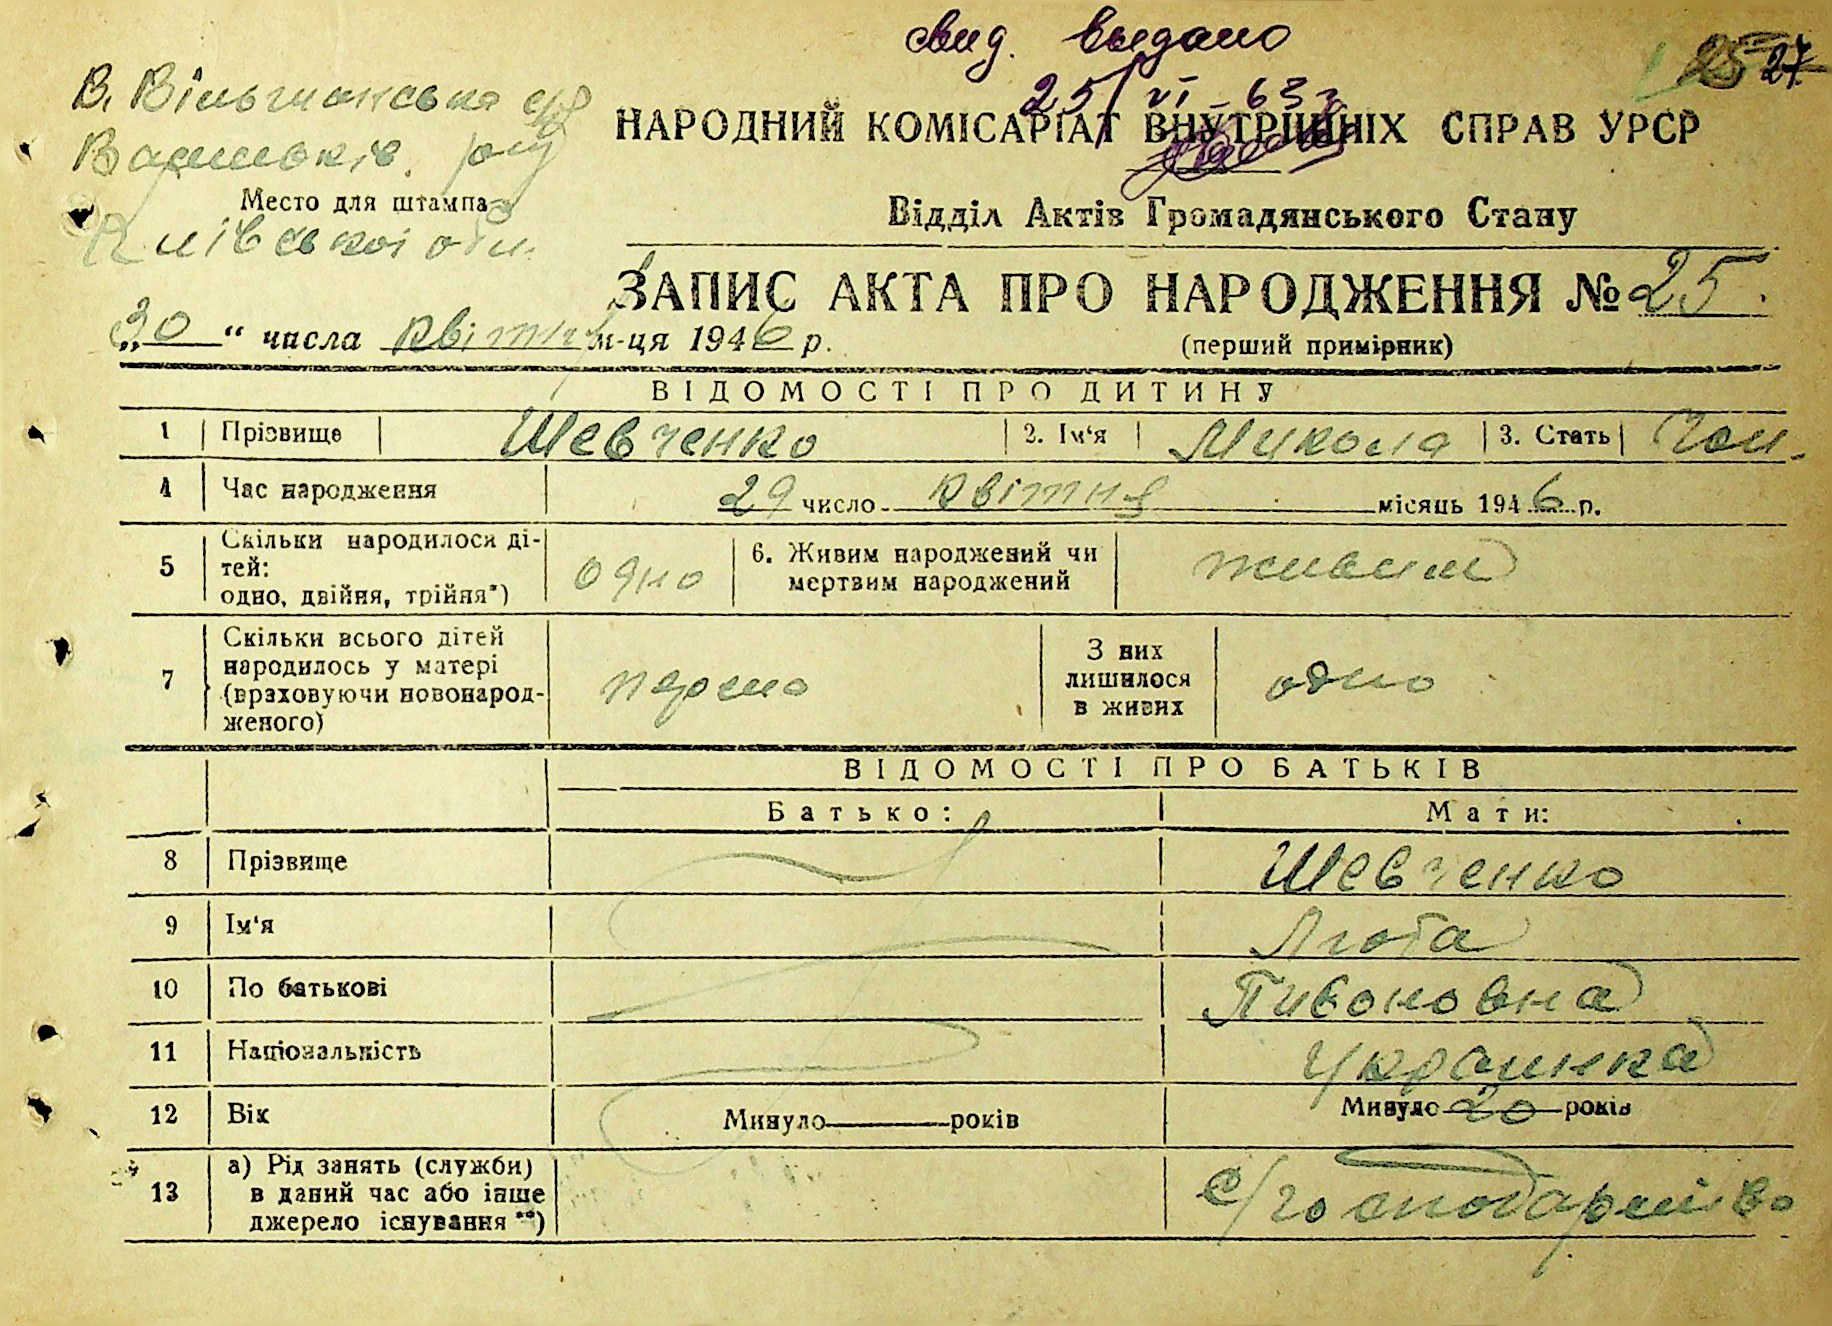 свид. выдано
25/VI-63г
25 27
В. Вільшанська с/р
Васильків. р-ну
Место для штампа
Київської обл.
НАРОДНИЙ КОМІСАРІАТ ВНУТРІШНІХ СПРАВ УРСР
Відділ Актів Громадянського Стану
ЗАПИС АКТА ПРО НАРОДЖЕННЯ № 25.
„30“ числа квітня м-ця 1946 р.
(перший примірник)
ВІДОМОСТІ ПРО ДИТИНУ
1 Прізвище Шевченко 2. Ім‘я Микола 3. Стать Чол.
4 Час народження 29 число квітня місяць 1946 р.
5 Скільки народилося ді-
тей:
одно, двійня, трійня*) одно 6. Живим народжений чи
мертвим народжений живим
7 Скільки всього дітей
народилось у матері
(враховуючи новонарод-
женого) перше З них
лишилося
в живих одно
ВІДОМОСТІ ПРО БАТЬКІВ
Батько: Мати:
8 Прізвище Шевченко
9 Ім‘я Люба
10 По батькові Пивоновна
11 Національність Украинка
12 Вік Минуло років Минуло 20 років
13 а) Рід занять (служби)
в даний час або інше
джерело існування **) с/господарство